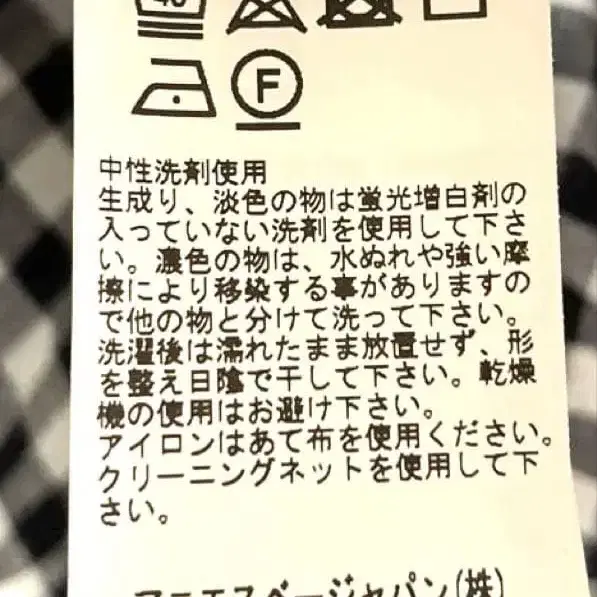 40
F
中性洗剤使用
生成り、淡色の物は蛍光増白剤の
入っていない洗剤を使用して下さ
い。濃色の物は、水ぬれや強い摩
擦により移染する事がありますの
で他の物と分けて洗って下さい。
洗濯後は濡れたまま放置せず、形
を整え日陰で干して下さい。乾燥
機の使用はお避け下さい。
アイロンはあて布を使用ください。
クリーニングネットを使用して下
さい。
アニエスベージャパン(株)